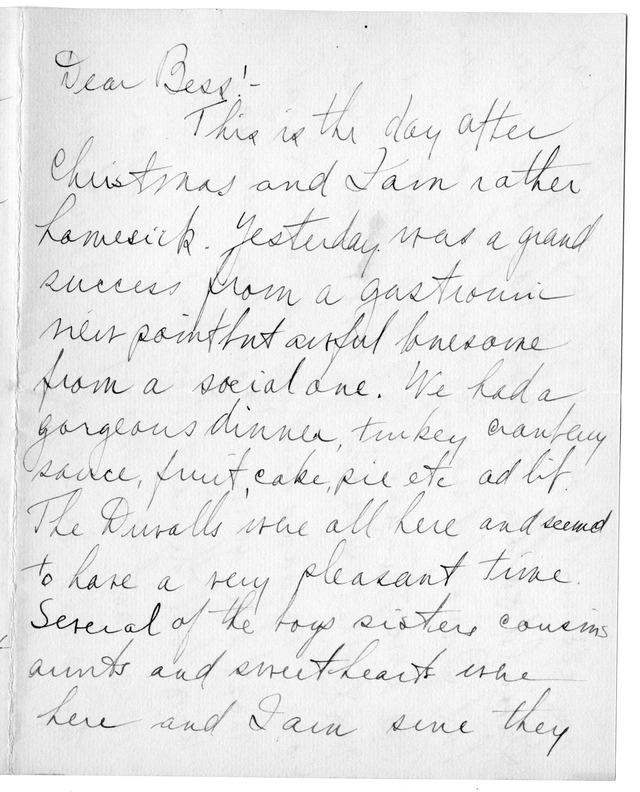 Dear Bess:-
This is the day after
Christmas and I am rather
homesick. Yesterday was a grand
success from a gastronomic
view point but awful lonesome
from a social one. We had a
gorgeous dinner, turkey cranberry
sauce, fruit, cake, pie etc ad lib.
The Duvalls were all here and seemed
to have a very pleasant time.
Several of the boys sisters cousins
aunts and sweethearts were
here and I am sure they